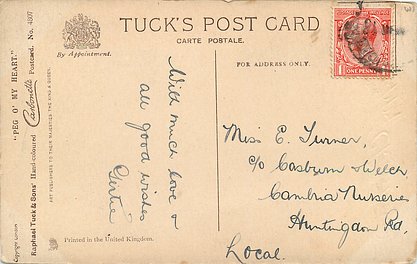 TUCK'S POST CARD
CARTE POSTALE.
By Appointment.
FOR ADDRESS ONLY.
"PEG O' MY HEART."
Raphael Tuck & Sons' Hand-coloured Carbonette Postcard. No. 4807
ART PUBLISHERS TO THEIR MAJESTIES THE KING & QUEEN.
Copyright London
With much love &
all good wishes
Gertie
Printed in the United Kingdom.
1 ONE PENNY 1
Miss E. Turner,
c/o Cosburn & Welch,
Cambria Nurseries
Huntingdon Rd,
Local.